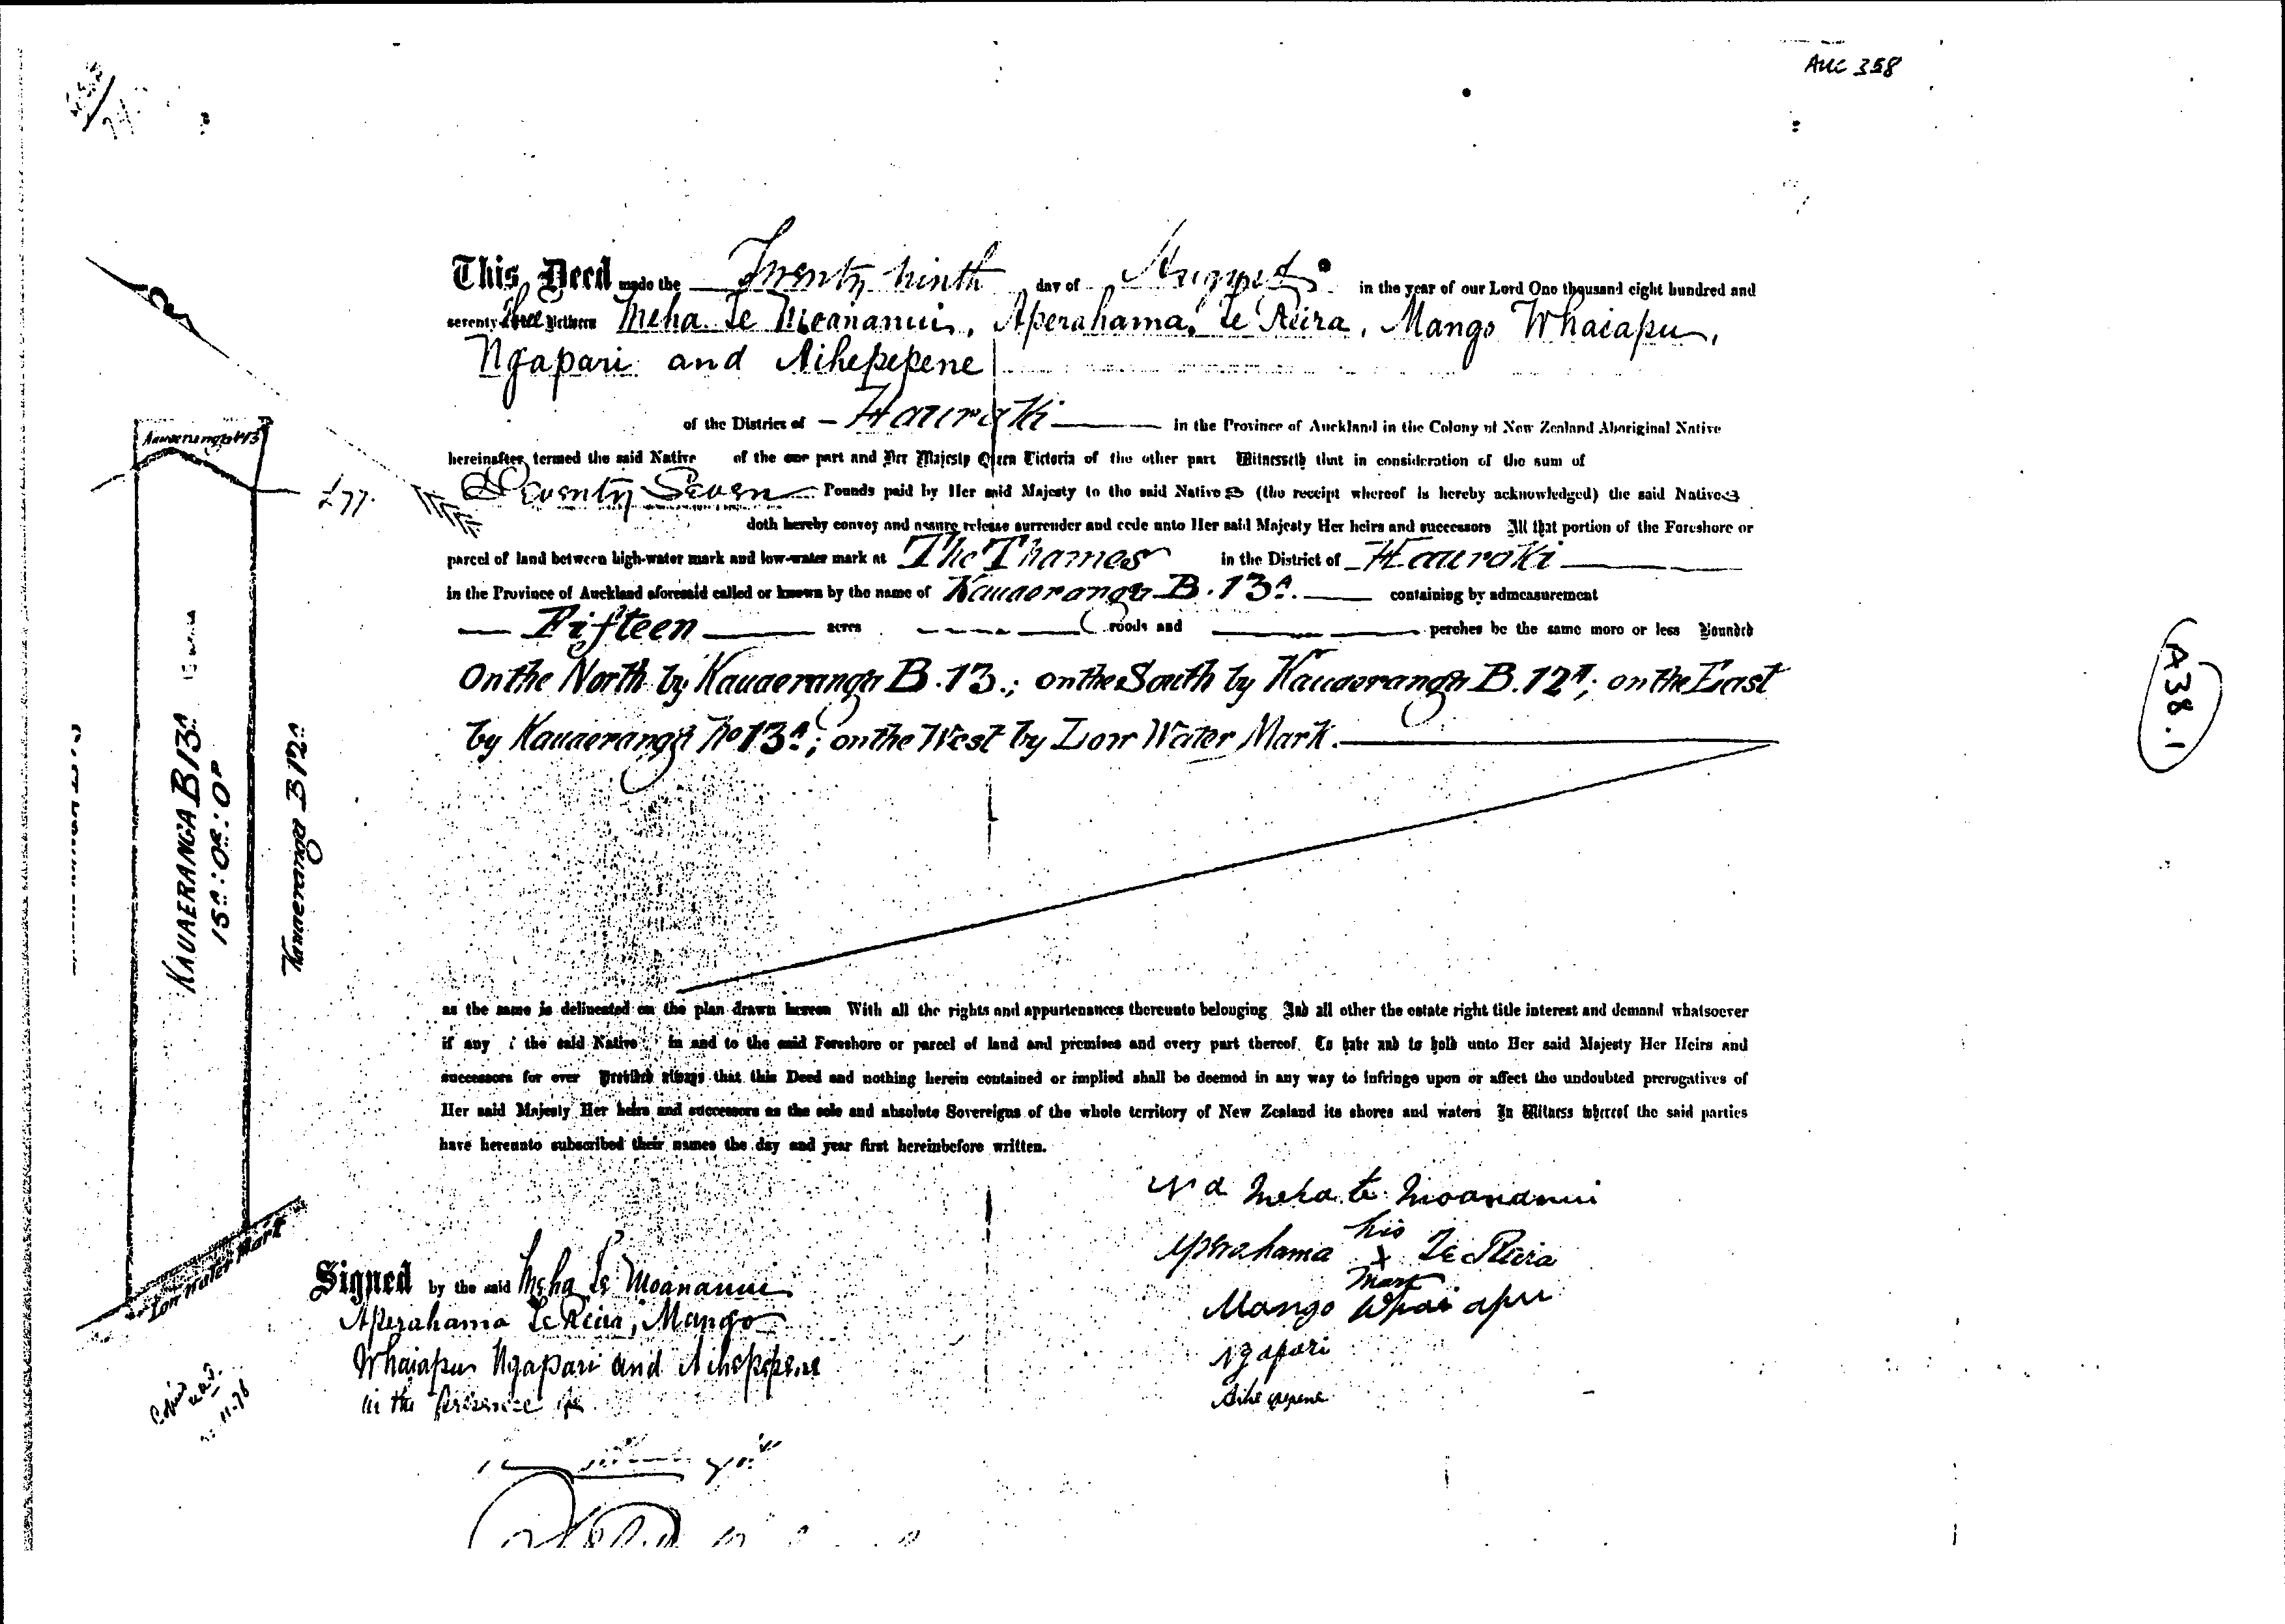 AUC 358
This Deed made the Twenty ninth day of August in the year of our Lord One thousand eight hundred and
seventy three Between Meha Te Moananui, Aperahama Te Reira, Mango Whaiapu,
Ngapari and Aihepepene
of the District of Hauraki in the Province of Auckland in the Colony of New Zealand Aboriginal Native
hereinafter termed the said Native of the one part and Her Majesty Queen Victoria of the other part Witnesseth that in consideration of the sum of
Seventy Seven Pounds paid by Her said Majesty to the said Natives (the receipt whereof is hereby acknowledged) the said Natives
doth hereby convey and assure release surrender and cede unto Her said Majesty Her heirs and successors All that portion of the Foreshore or
parcel of land between high-water mark and low-water mark at The Thames in the District of Hauraki
in the Province of Auckland aforesaid called or known by the name of Kauaeranga B. 13A. containing by admeasurement
Fifteen acres roods and perches be the same more or less Bounded
On the North by Kauaeranga B. 13.; on the South by Kauaeranga B. 12A; on the East
by Kauaeranga No 13A; on the West by Low Water Mark.
as the same is delineated on the plan drawn hereon With all the rights and appurtenances thereunto belonging And all other the estate right title interest and demand whatsoever
if any the said Native in and to the said Foreshore or parcel of land and premises and every part thereof. To have and to hold unto Her said Majesty Her Heirs and
successors for ever Provided always that this Deed and nothing herein contained or implied shall be deemed in any way to infringe upon or affect the undoubted prerogatives of
Her said Majesty Her heirs and successors as the sole and absolute Sovereigns of the whole territory of New Zealand its shores and waters In Witness whereof the said parties
have hereunto subscribed their names the day and year first hereinbefore written.
Meha te Moananui
Aperahama his x mark Te Reira
Mango Whaiapu
Ngapari
Aihepepene
Signed by the said Meha Te Moananui
Aperahama Te Reira, Mango
Whaiapu Ngapari and Aihepepene
in the presence of
£77.
KAUAERANGA B 13A
15A : 0R : 0P
Kauaeranga B 12A
Low Water Mark
A38.1